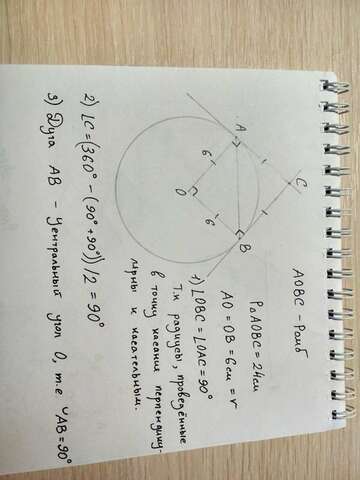 AOBC - Ромб
PдAOBC = 24см
AO = OB = 6см = r
1) ∠OBC = ∠OAC = 90°
Т.к радиусы, проведённые
в точку касания перпендику-
лярны к касательным.
2) ∠C = (360° - (90° + 90°))/2 = 90°
3) Дуга AB - центральный угол O, т.е ᵕAB = 90°
A
C
B
O
6
6